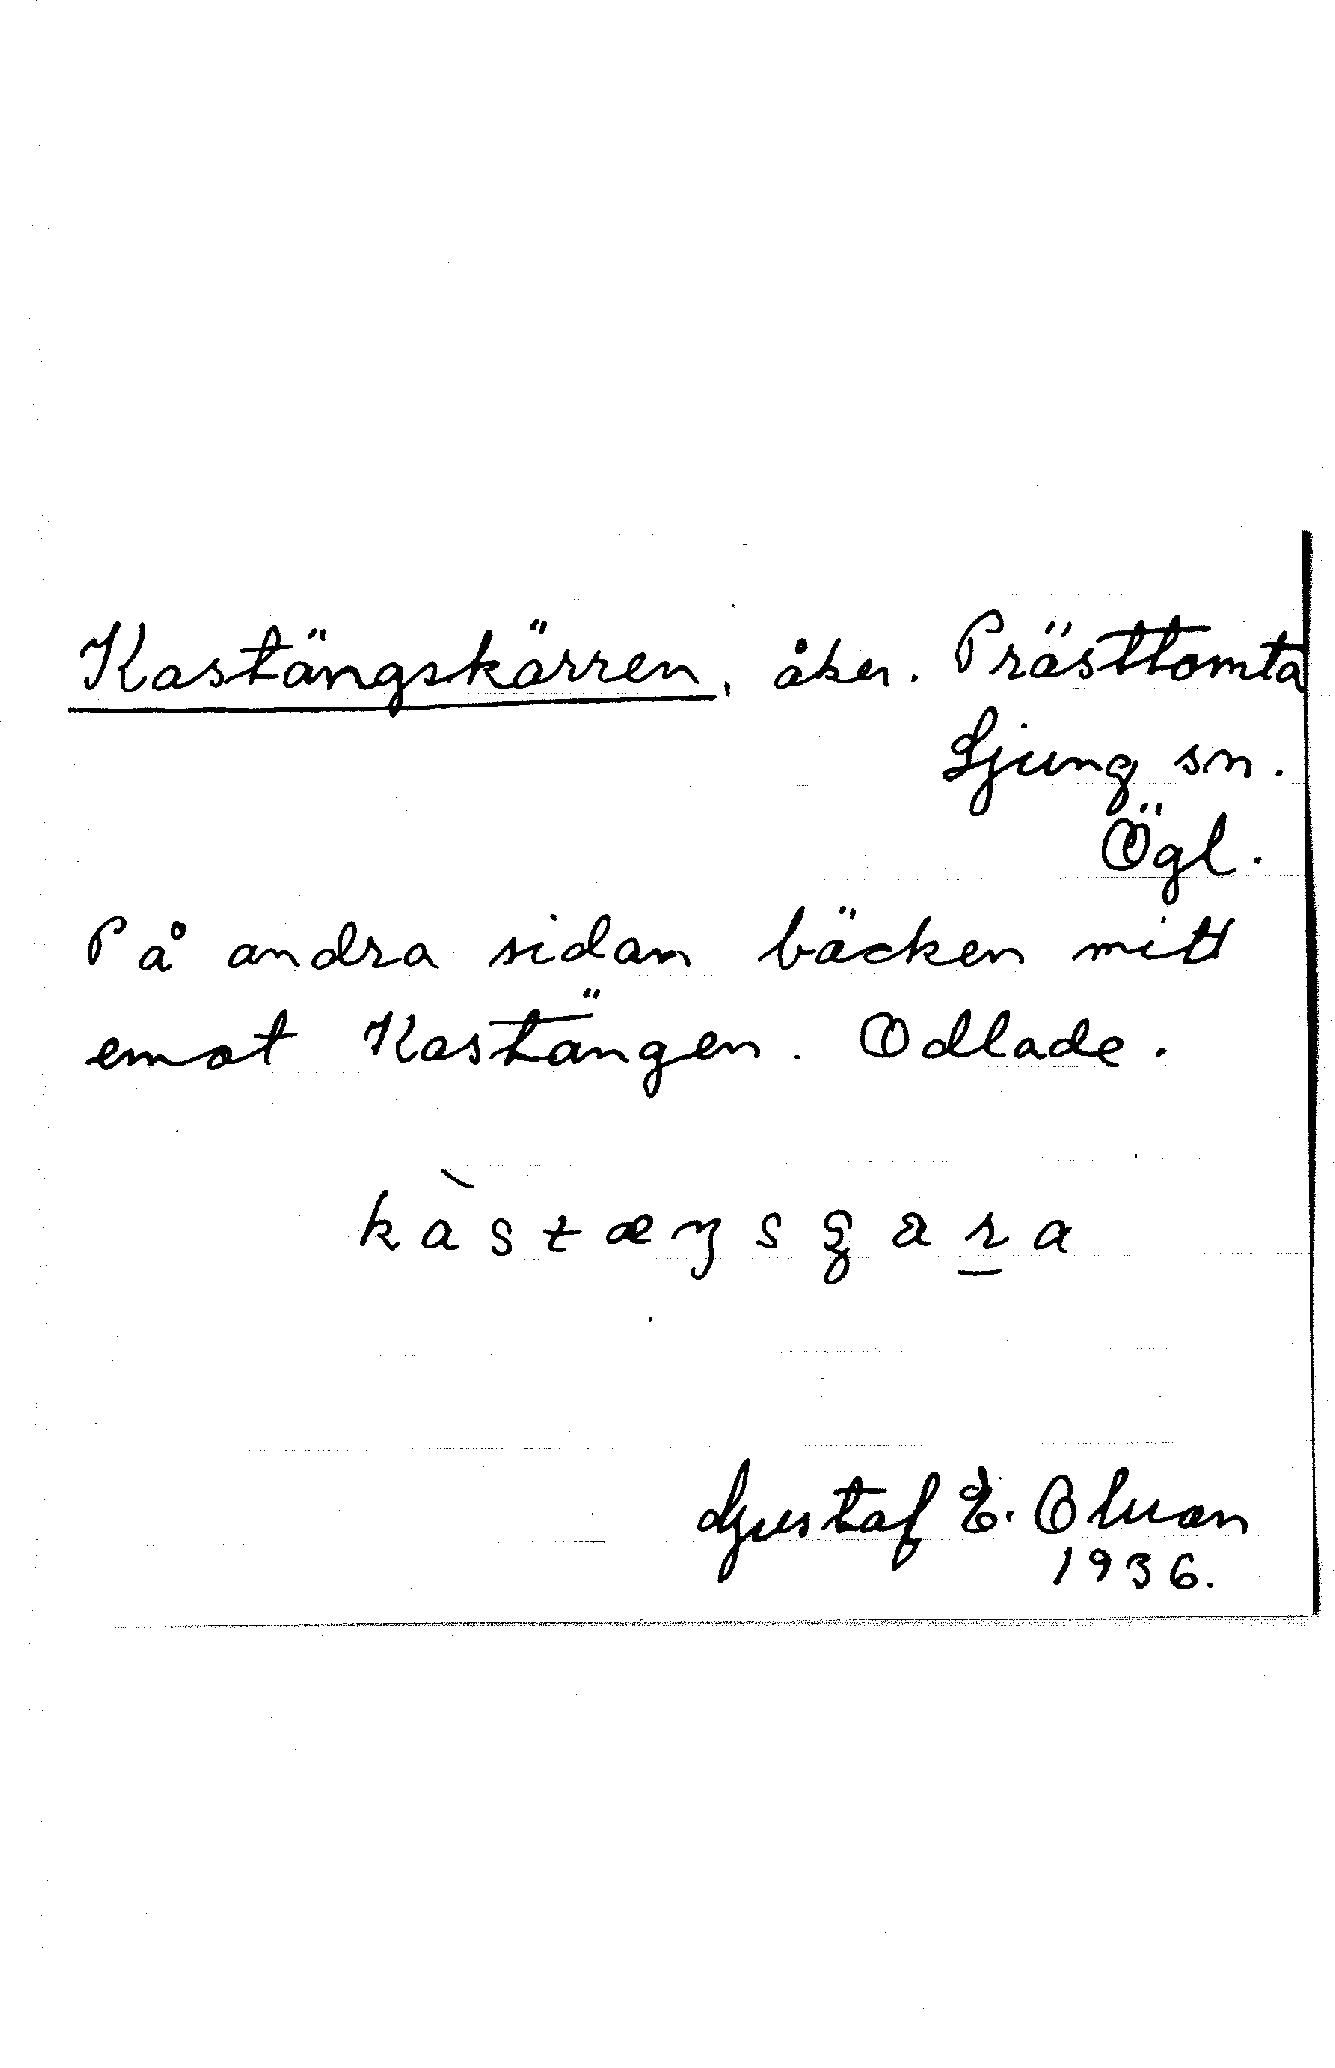 Kastängskärren, åker. Prästtomta
Ljung sn.
Ögl.
På andra sidan bäcken mitt
emot Kastängen. Odlade.
Gustaf E.
1936.